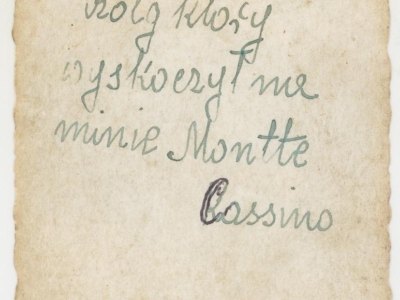 który
wyskoczył na
minie Montte
Cassino